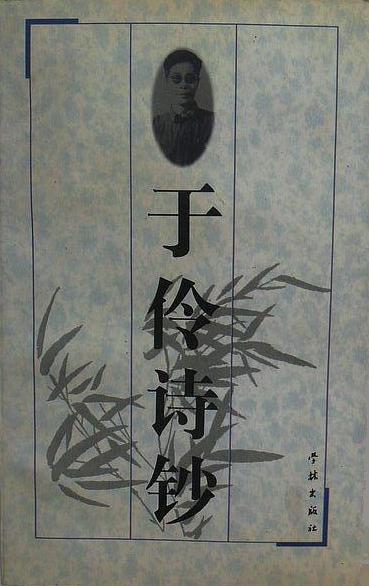 于伶诗钞
学林出版社